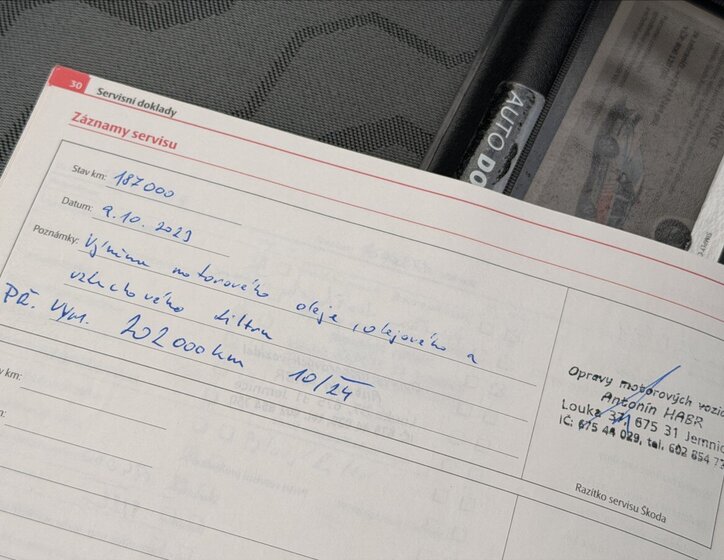 30 Servisní doklady
Záznamy servisu
Stav km: 187000
Datum: 9.10.2023
Poznámky: Výměna motorového oleje, olejového a
vzduchového filtru
PŘ. VYM. 202000km 10/24
Opravy motorových vozid
Antonín HABR
Louka 37, 675 31 Jemnic
IČ: 675 44 029, tel. 602 854 72
Razítko servisu Škoda
km:
AUTO DO